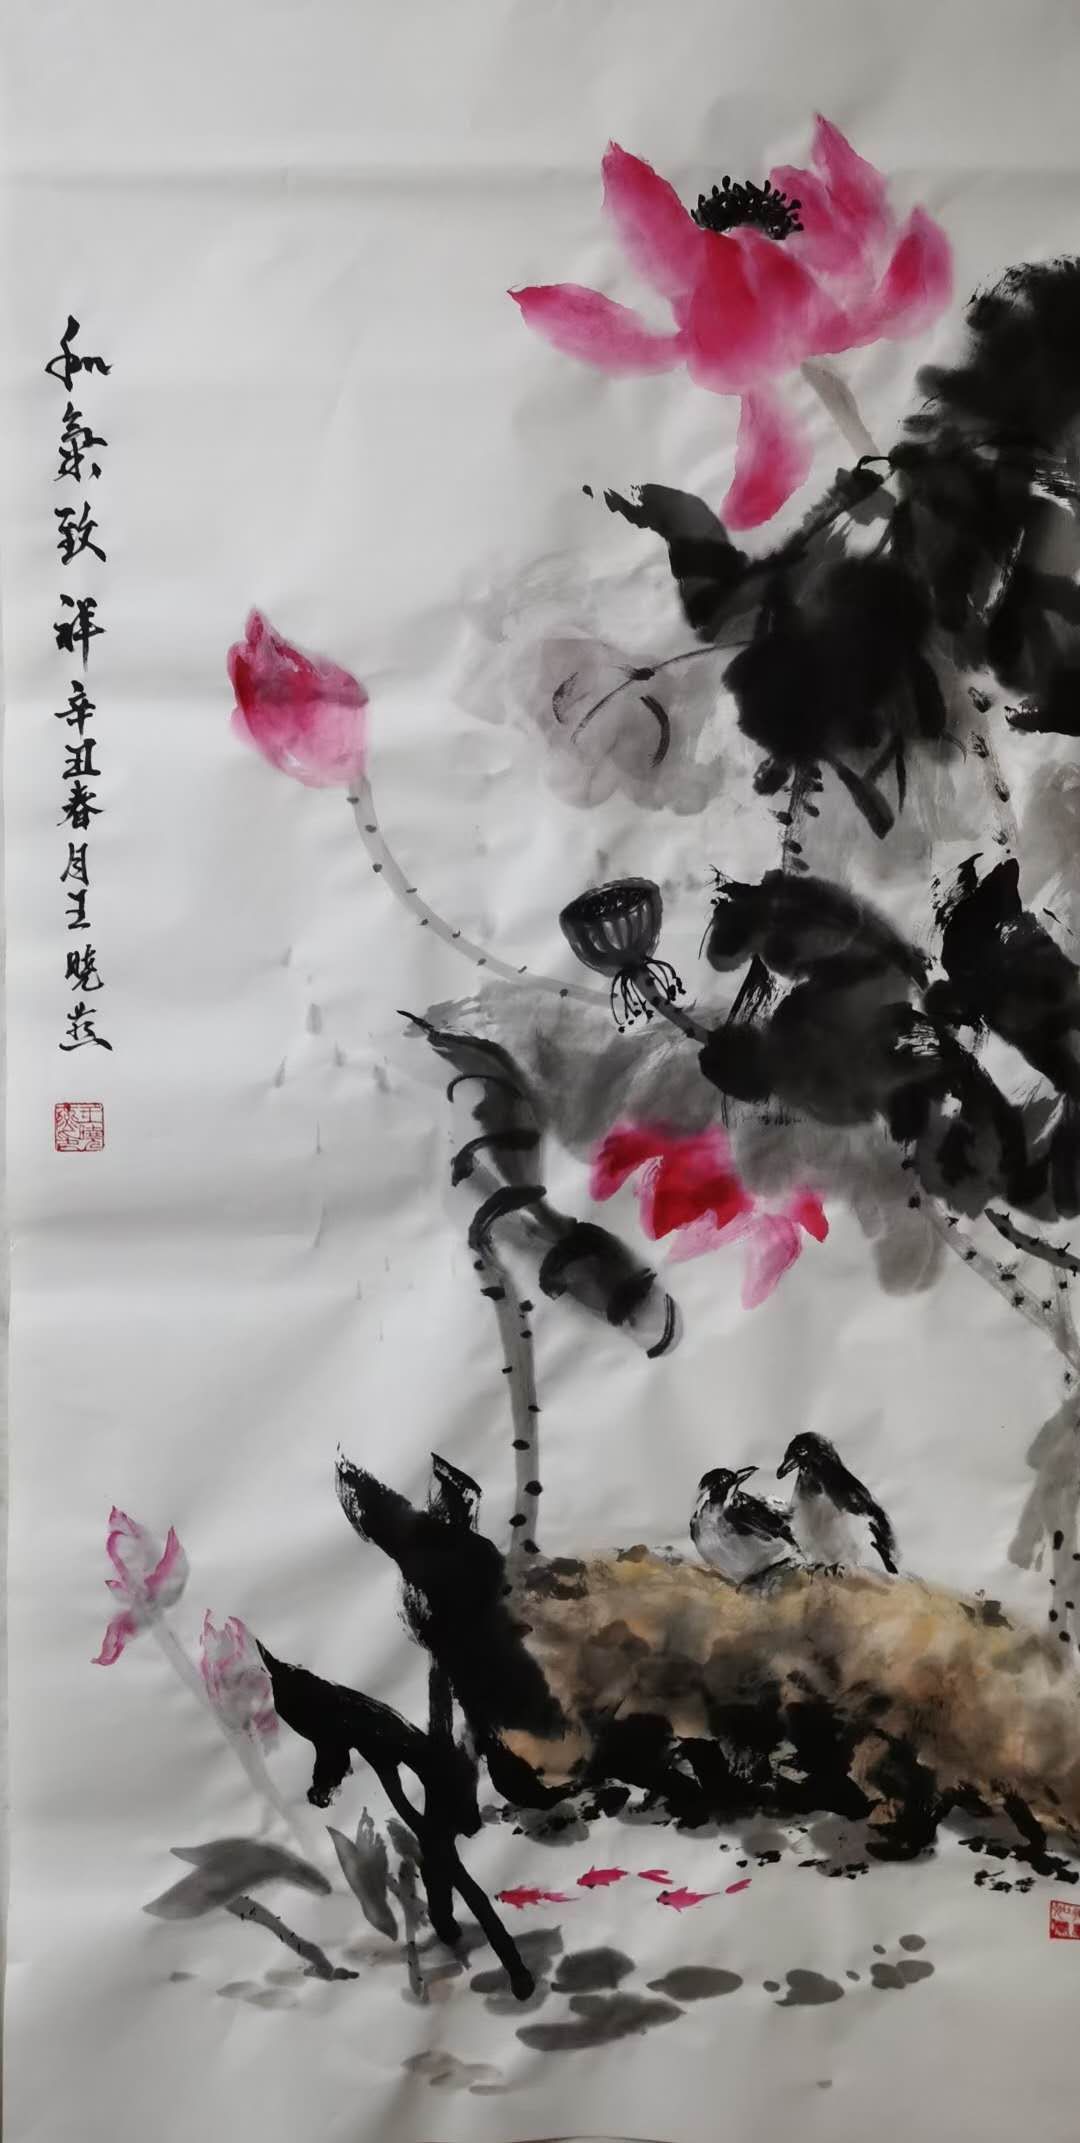 和氣致祥辛丑春月王曉燕